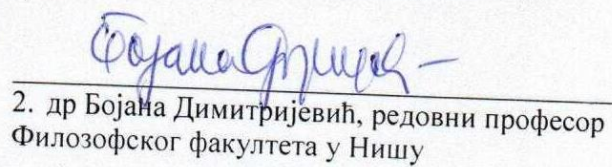 Бојана
2. др Бојана Димитријевић, редовни професор
Филозофског факултета у Нишу